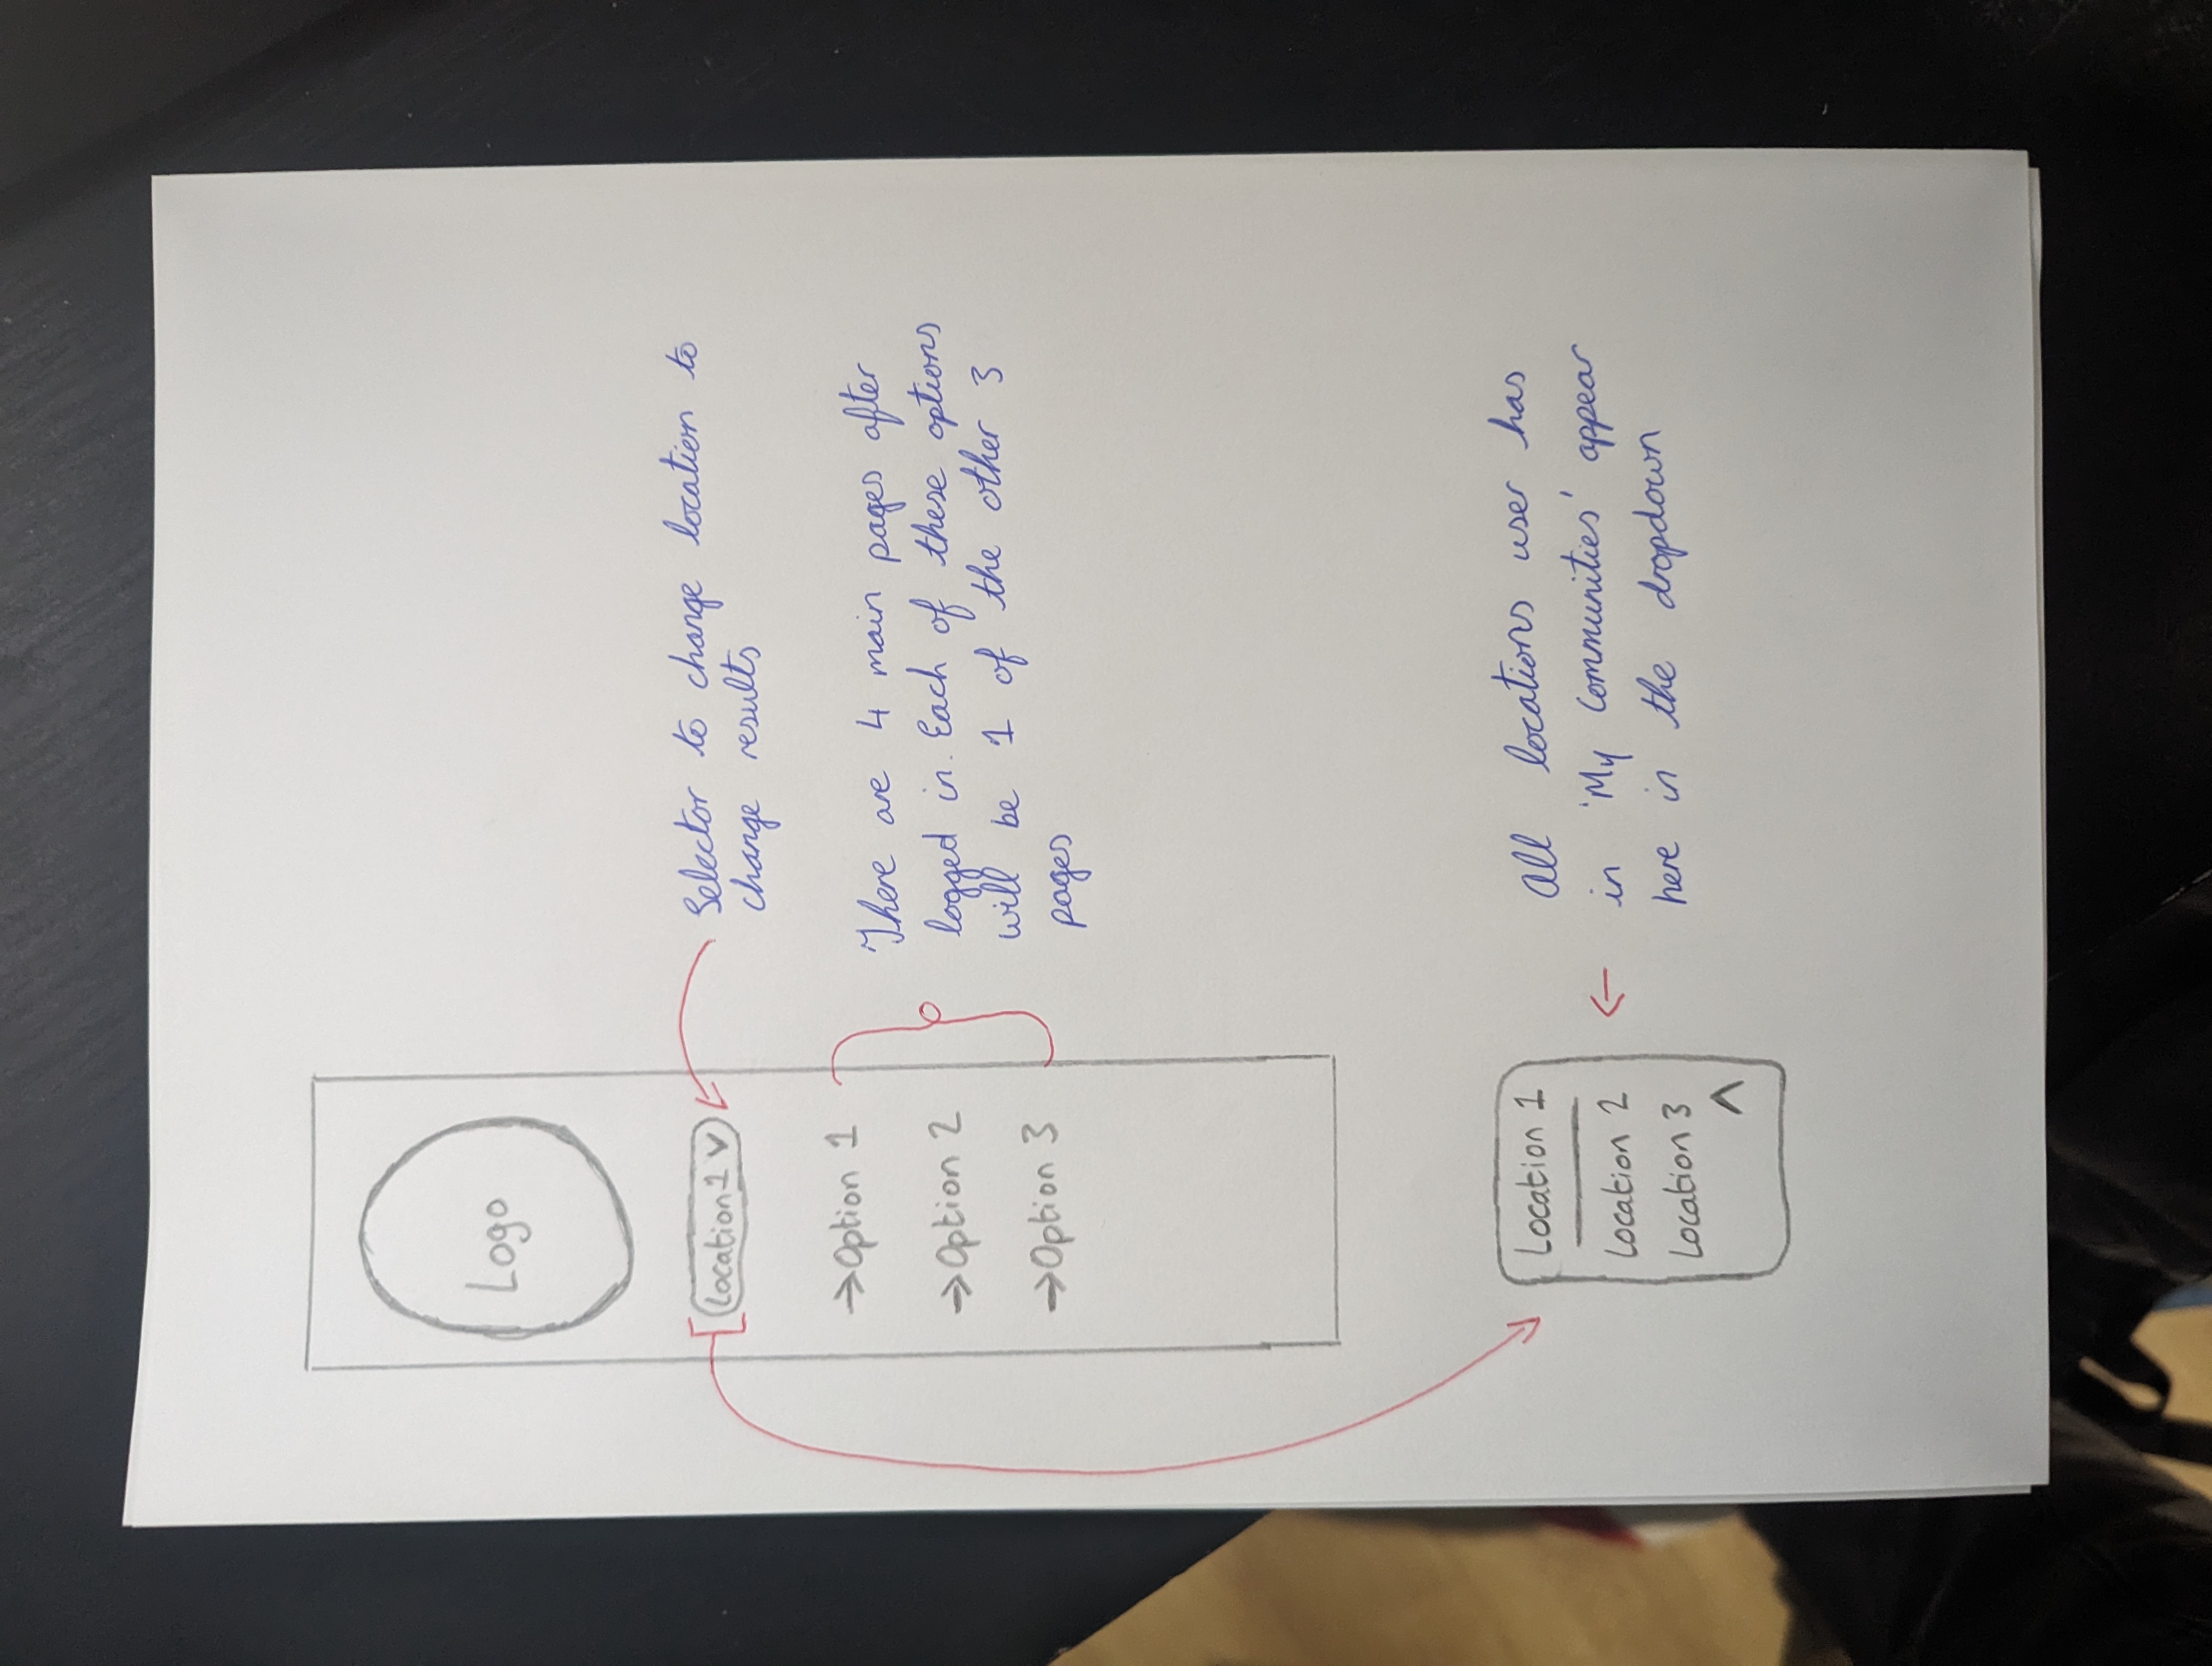 Logo
Location 1 v
Selector to change location to
change results
→Option 1
→Option 2
→Option 3
There are 4 main pages after
logged in. Each of these options
will be 1 of the other 3
pages
Location 1
Location 2
Location 3
All locations user has
in 'My Communities' appear
here in the dropdown